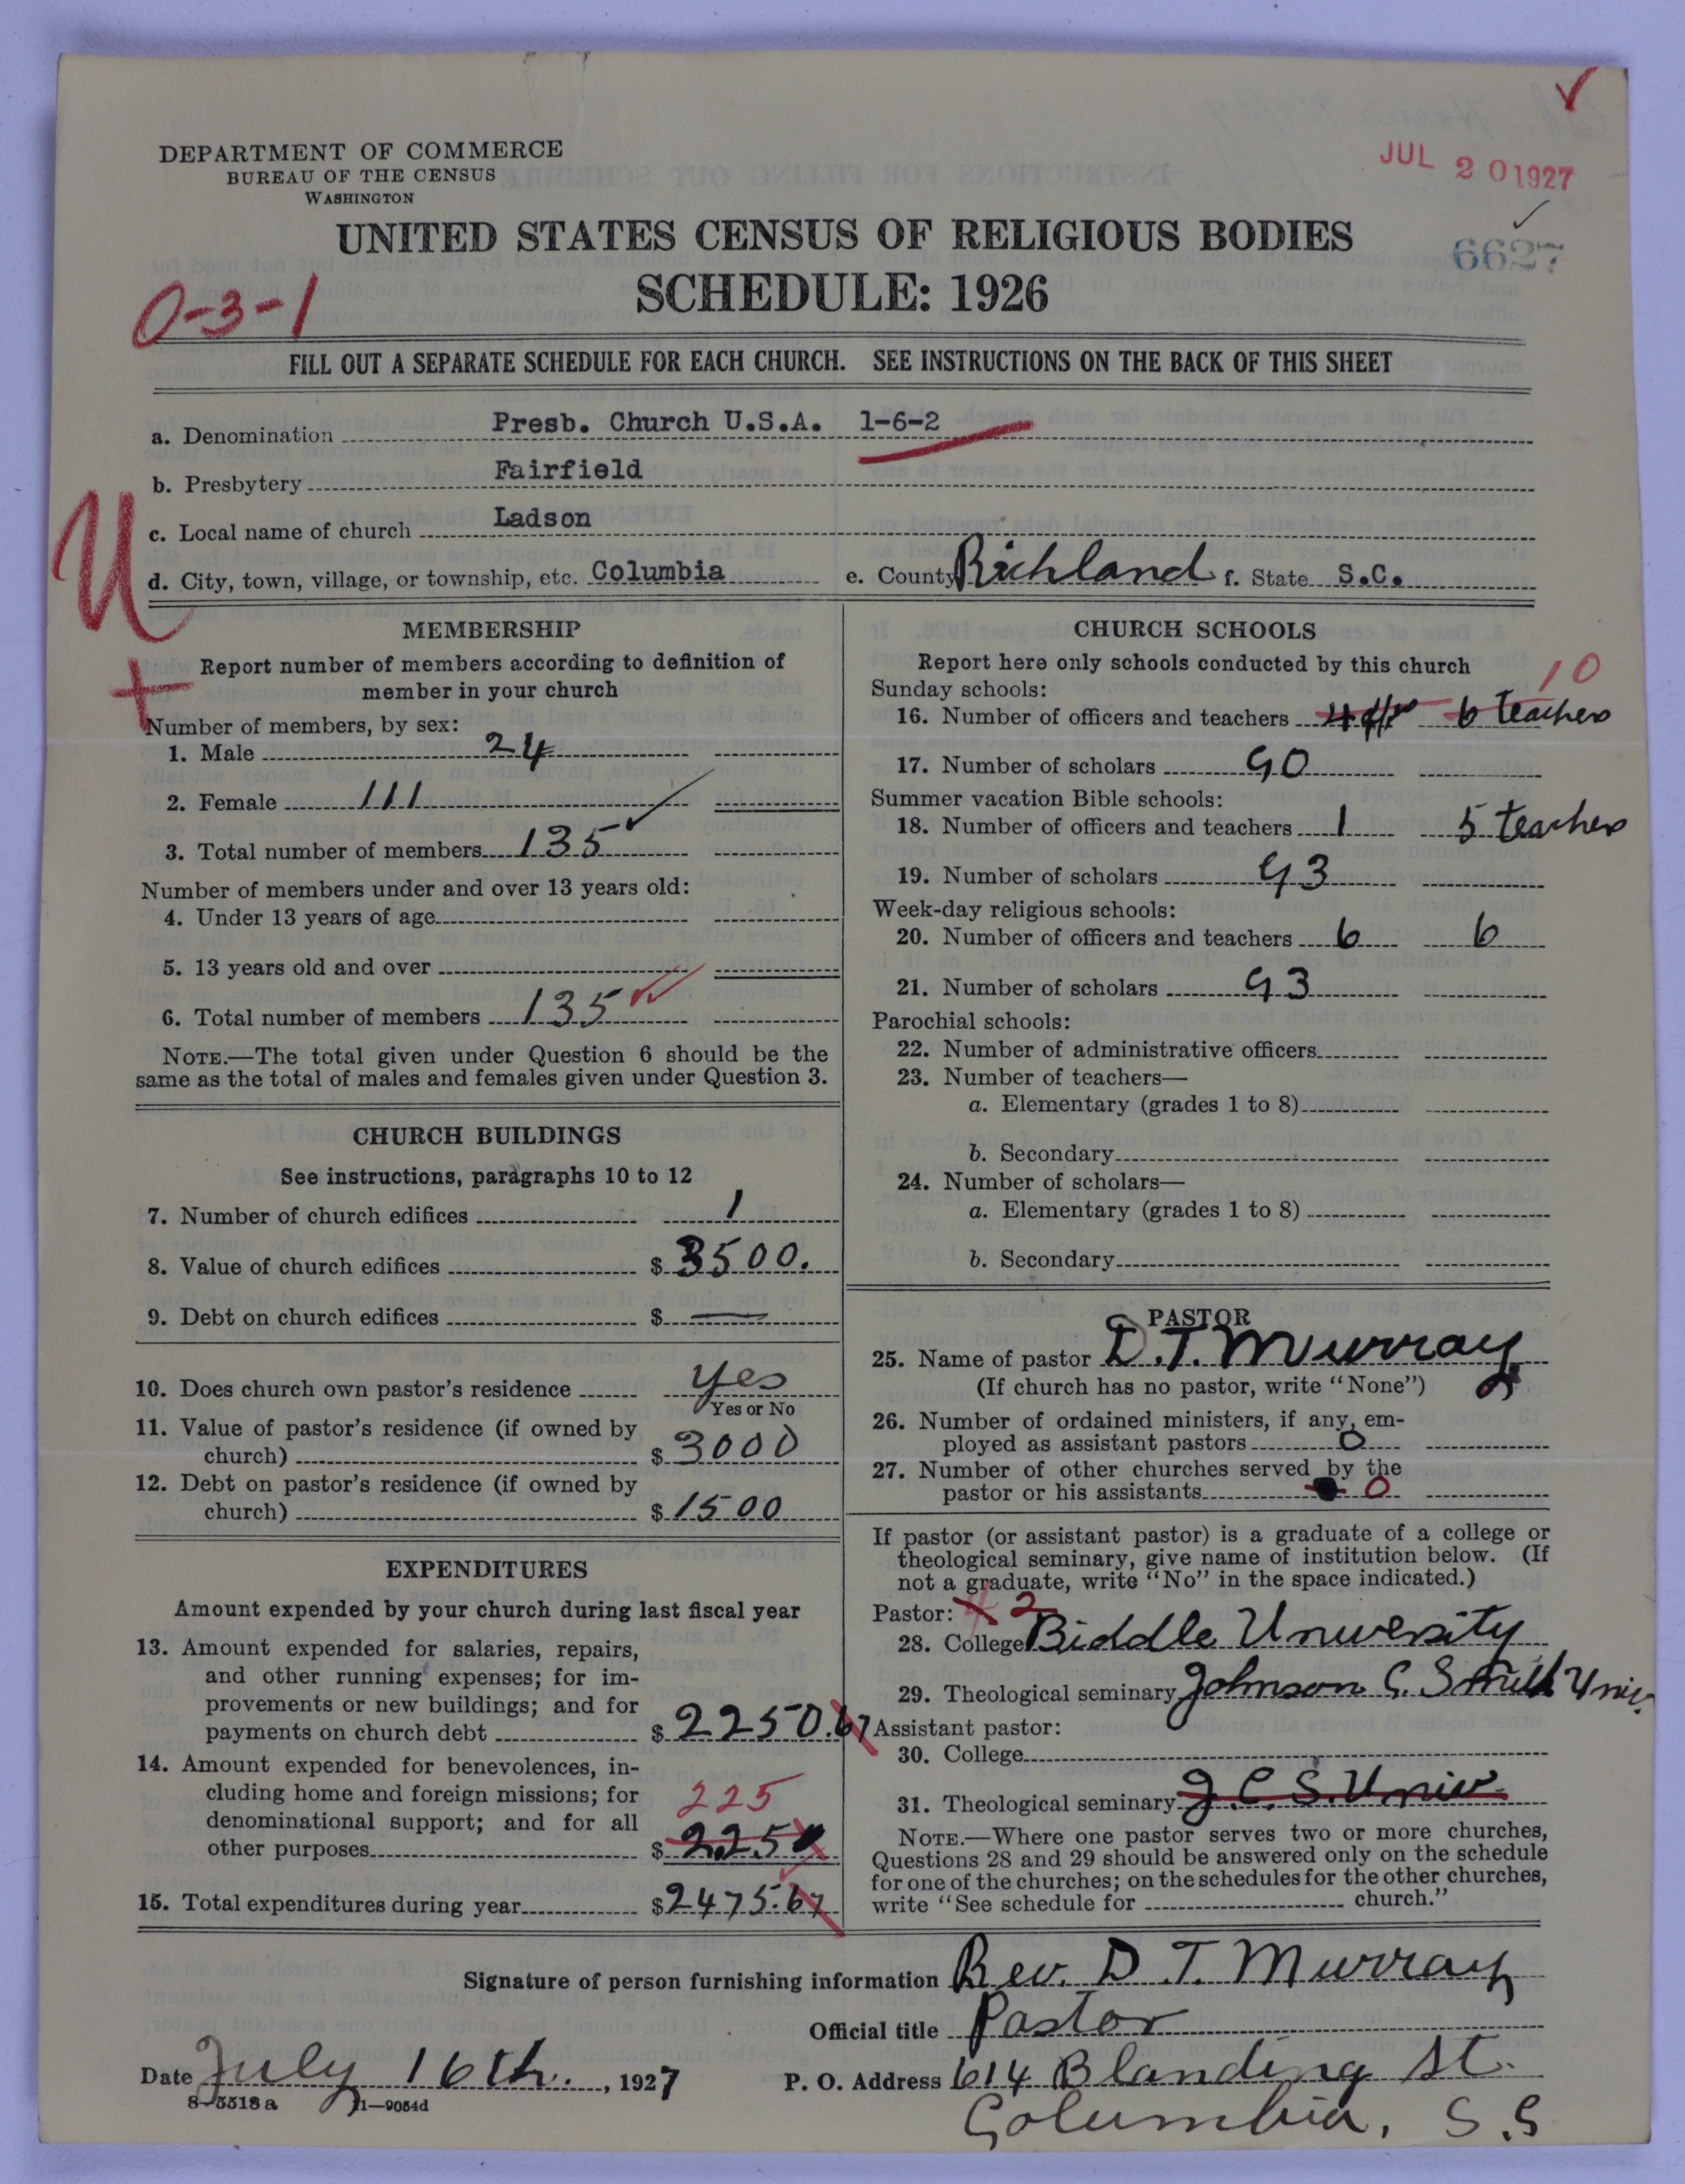 DEPARTMENT OF COMMERCE
BUREAU OF THE CENSUS
WASHINGTON
JUL 20 1927
UNITED STATES CENSUS OF RELIGIOUS BODIES
6627
SCHEDULE: 1926
0-3-1
FILL OUT A SEPARATE SCHEDULE FOR EACH CHURCH. SEE INSTRUCTIONS ON THE BACK OF THIS SHEET
a. Denomination Presb. Church U.S.A. 1-6-2
b. Presbytery Fairfield
c. Local name of church Ladson
d. City, town, village, or township, etc. Columbia e. County Richland f. State S.C.
U
MEMBERSHIP
Report number of members according to definition of
member in your church
Number of members, by sex:
1. Male 24
2. Female 111
3. Total number of members 135
Number of members under and over 13 years old:
4. Under 13 years of age
5. 13 years old and over
6. Total number of members 135
NOTE.—The total given under Question 6 should be the
same as the total of males and females given under Question 3.
CHURCH BUILDINGS
See instructions, paragraphs 10 to 12
7. Number of church edifices 1
8. Value of church edifices $ 3500.
9. Debt on church edifices $ —
10. Does church own pastor's residence yes
Yes or No
11. Value of pastor's residence (if owned by
church) $ 3000
12. Debt on pastor's residence (if owned by
church) $ 1500
EXPENDITURES
Amount expended by your church during last fiscal year
13. Amount expended for salaries, repairs,
and other running expenses; for im-
provements or new buildings; and for
payments on church debt $ 2250.67
14. Amount expended for benevolences, in-
cluding home and foreign missions; for
denominational support; and for all
225
other purposes $ 225
15. Total expenditures during year $ 2475.67
CHURCH SCHOOLS
Report here only schools conducted by this church
Sunday schools: 10
16. Number of officers and teachers 4 6 teachers
17. Number of scholars 90
Summer vacation Bible schools:
18. Number of officers and teachers 1 5 teachers
19. Number of scholars 93
Week-day religious schools:
20. Number of officers and teachers 6 6
21. Number of scholars 93
Parochial schools:
22. Number of administrative officers
23. Number of teachers—
a. Elementary (grades 1 to 8)
b. Secondary
24. Number of scholars—
a. Elementary (grades 1 to 8)
b. Secondary
PASTOR
25. Name of pastor D.T. Murray
(If church has no pastor, write "None")
26. Number of ordained ministers, if any, em-
ployed as assistant pastors 0
27. Number of other churches served by the
pastor or his assistants 0
If pastor (or assistant pastor) is a graduate of a college or
theological seminary, give name of institution below. (If
not a graduate, write "No" in the space indicated.)
Pastor: 2
28. College Biddle University
29. Theological seminary Johnson C. Smith Univ.
Assistant pastor:
30. College
31. Theological seminary J.C.S. Univ
NOTE.—Where one pastor serves two or more churches,
Questions 28 and 29 should be answered only on the schedule
for one of the churches; on the schedules for the other churches,
write "See schedule for church."
Signature of person furnishing information Rev. D T. Murray
Official title Pastor
Date July 16th. , 1927 P. O. Address 614 Blanding St.
8-5518a 11—9054d
Columbia, S.C